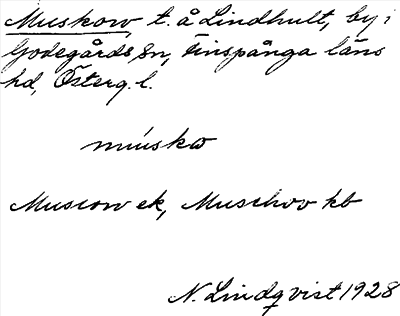 Muskow, t. å Lindhult, by i
Godegårds sn, Finspånga läns
hd, Österg. l.
múskω
Muscow ek, Muschov kb
N. Lindqvist 1928